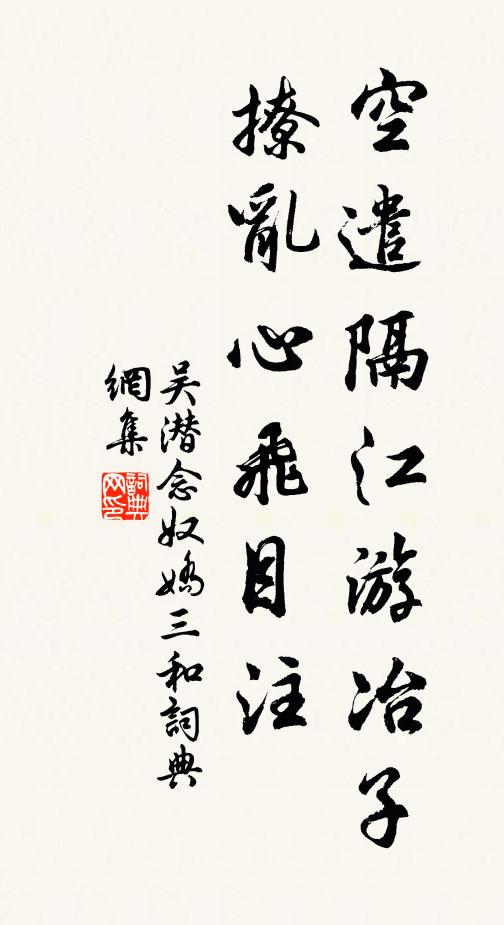 空遣隔江游冶子
撩亂心飛目注
吴潜念奴嬌三和詞典
網集
詞典
网印